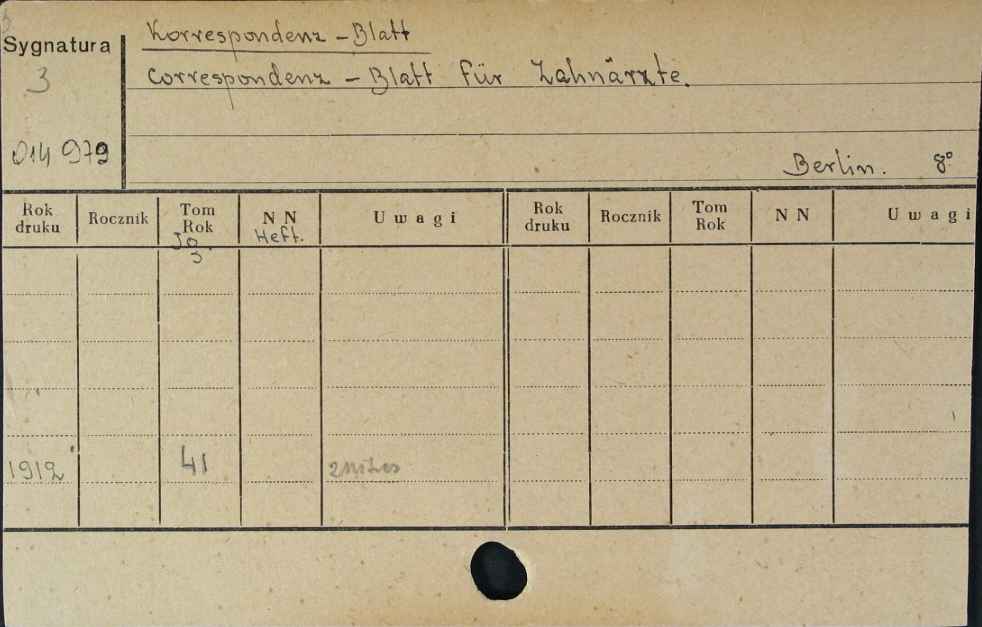 Sygnatura
3
014 979
Korrespondenz - Blatt
Correspondenz - Blatt für Zahnärzte.
Berlin. 8°
Rok druku Rocznik Tom Rok N N Uwagi Rok druku Rocznik Tom Rok N N Uwagi
Heft.
1912 41